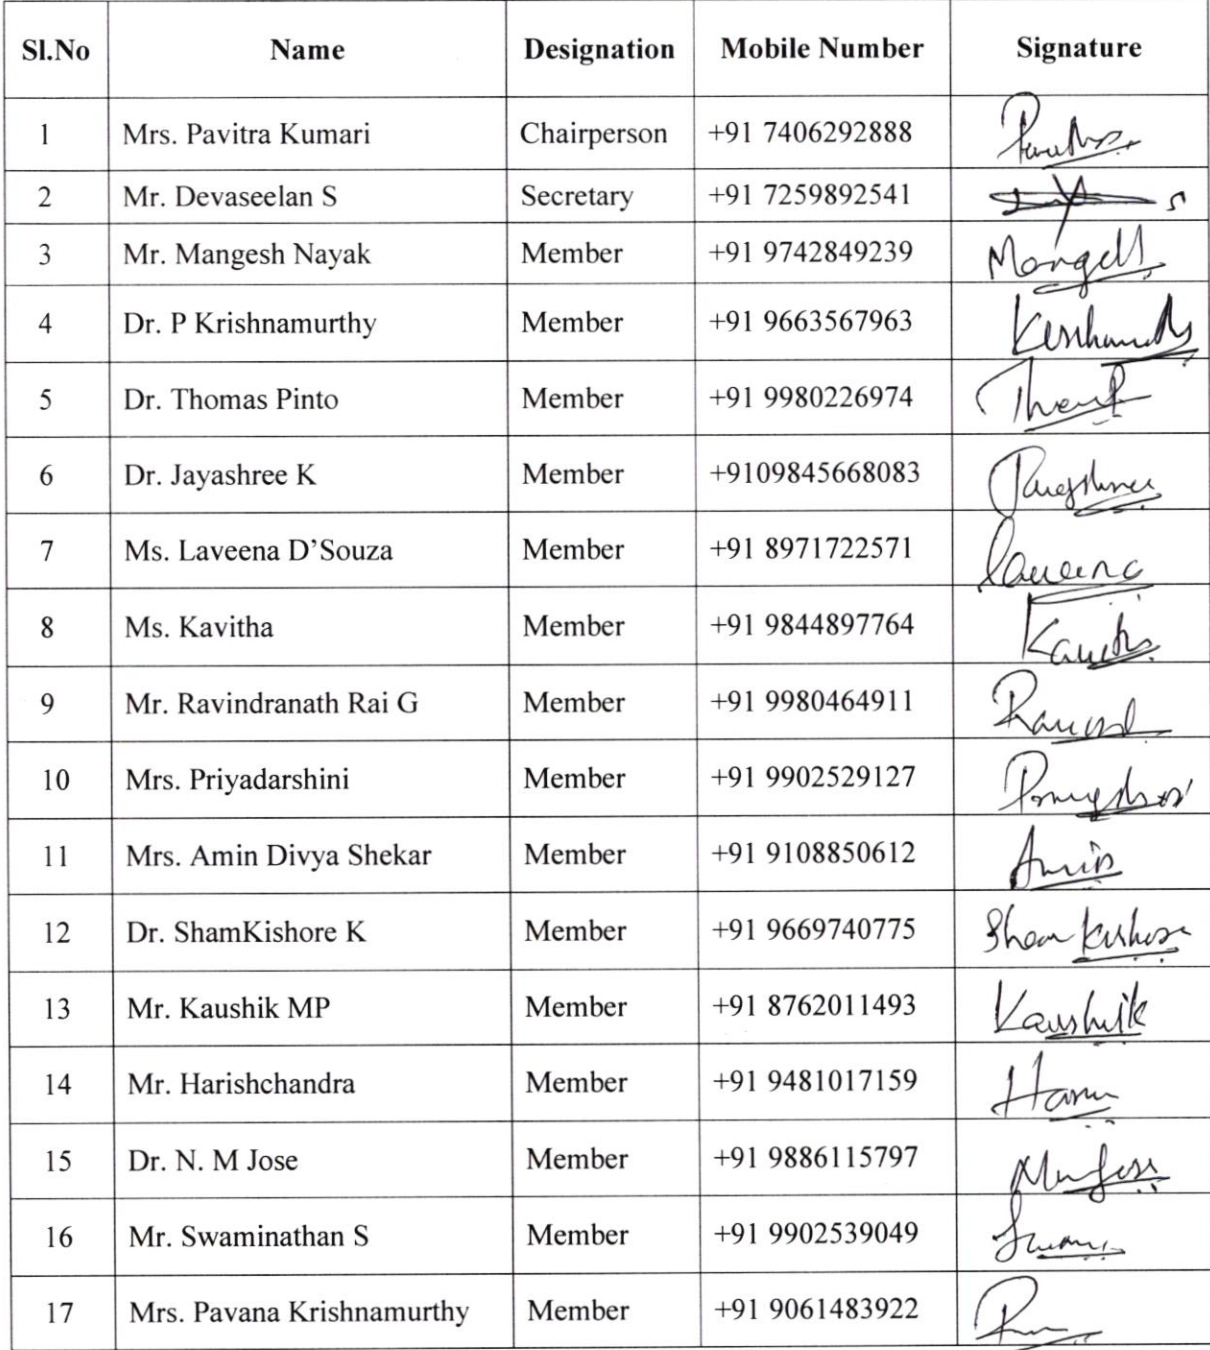 Sl.No Name Designation Mobile Number Signature
1 Mrs. Pavitra Kumari Chairperson +91 7406292888
2 Mr. Devaseelan S Secretary +91 7259892541
3 Mr. Mangesh Nayak Member +91 9742849239
4 Dr. P Krishnamurthy Member +91 9663567963
5 Dr. Thomas Pinto Member +91 9980226974
6 Dr. Jayashree K Member +9109845668083
7 Ms. Laveena D’Souza Member +91 8971722571 Laveena
8 Ms. Kavitha Member +91 9844897764
9 Mr. Ravindranath Rai G Member +91 9980464911
10 Mrs. Priyadarshini Member +91 9902529127
11 Mrs. Amin Divya Shekar Member +91 9108850612 Amin
12 Dr. ShamKishore K Member +91 9669740775
13 Mr. Kaushik MP Member +91 8762011493 Kaushik
14 Mr. Harishchandra Member +91 9481017159
15 Dr. N. M Jose Member +91 9886115797
16 Mr. Swaminathan S Member +91 9902539049
17 Mrs. Pavana Krishnamurthy Member +91 9061483922